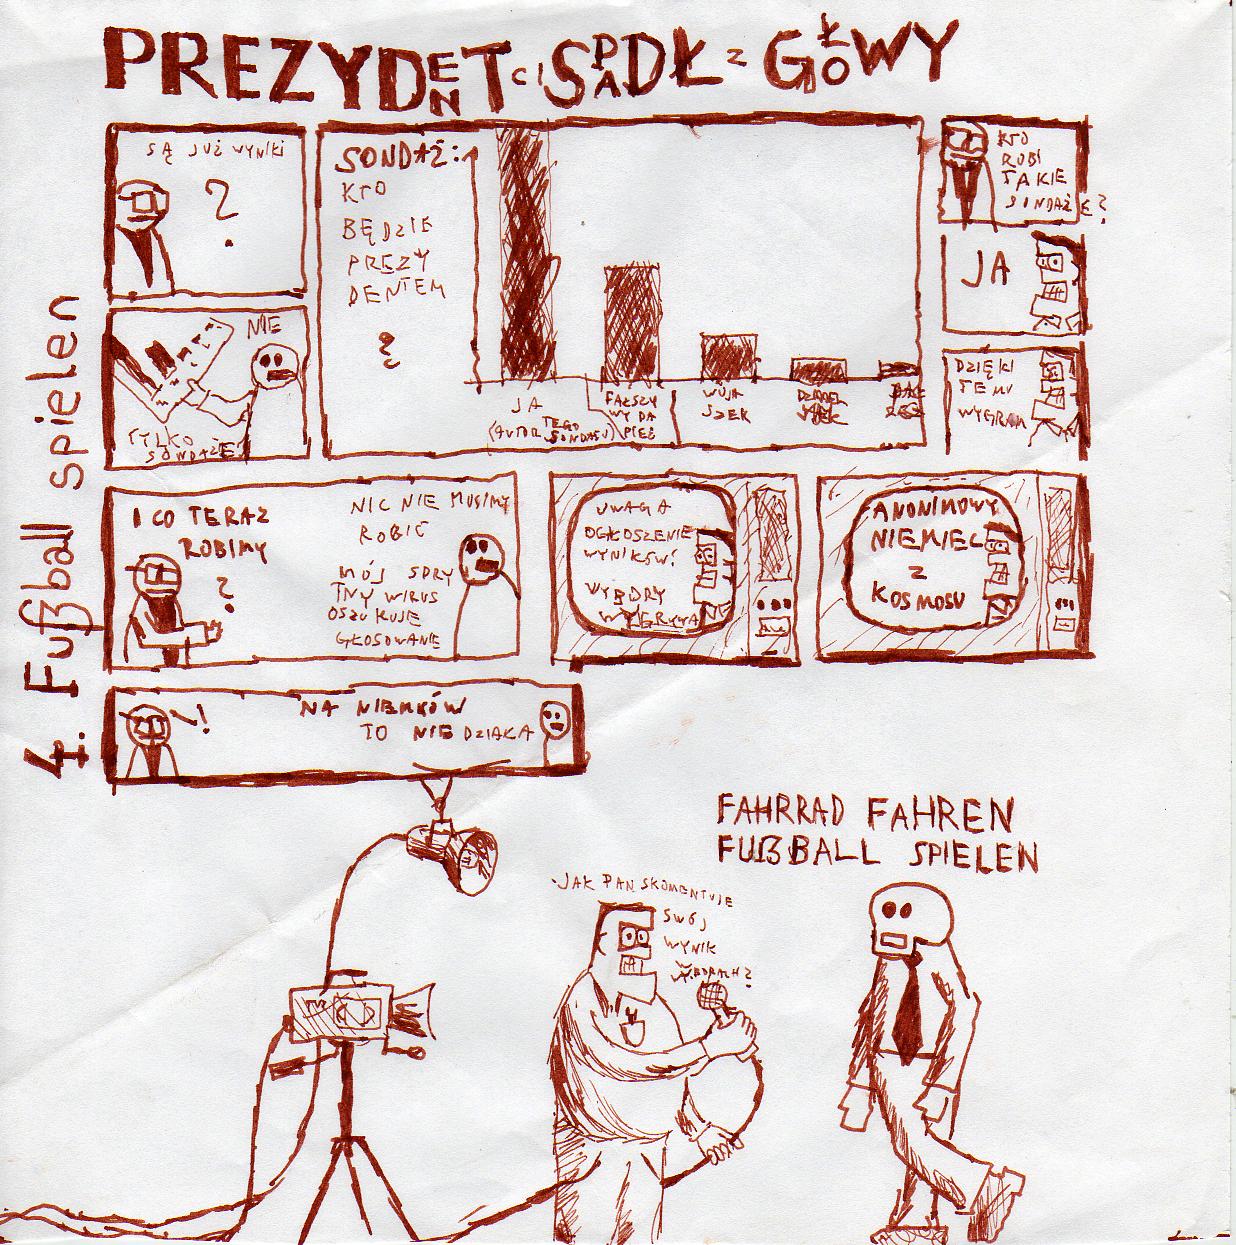 PREZYDENT CI SPADŁ Z GŁOWY
4. Fußball spielen
SĄ JUŻ WYNIKI
?
SONDAŻ:
KTO
BĘDZIE
PREZY
DENTEM
?
JA
(AUTOR TEGO
SONDAŻU)
FAŁSZY
WY DA
PIEŻ
WUJA
SZEK
KTO
ROBI
TAKIE
SONDAŻE?
JA
DZIĘKI
TEMU
WYGRAM
NIE
TYLKO
SONDAŻE!
I CO TERAZ
ROBIMY
?
NIC NIE MUSIMY
ROBIĆ
MÓJ SPRY
TNY WIRUS
OSZUKUJE
GŁOSOWANIE
UWAGA
OGŁOSZENIE
WYNIKÓW!
WYBORY
WYGRYWA
ANONIMOWY
NIEMIEC
Z
KOSMOSU
!
NA NIEMKÓW
TO NIE DZIAŁA
FAHRRAD FAHREN
FUßBALL SPIELEN
JAK PAN SKOMENTUJE
SWÓJ
WYNIK
W
WYBORACH?